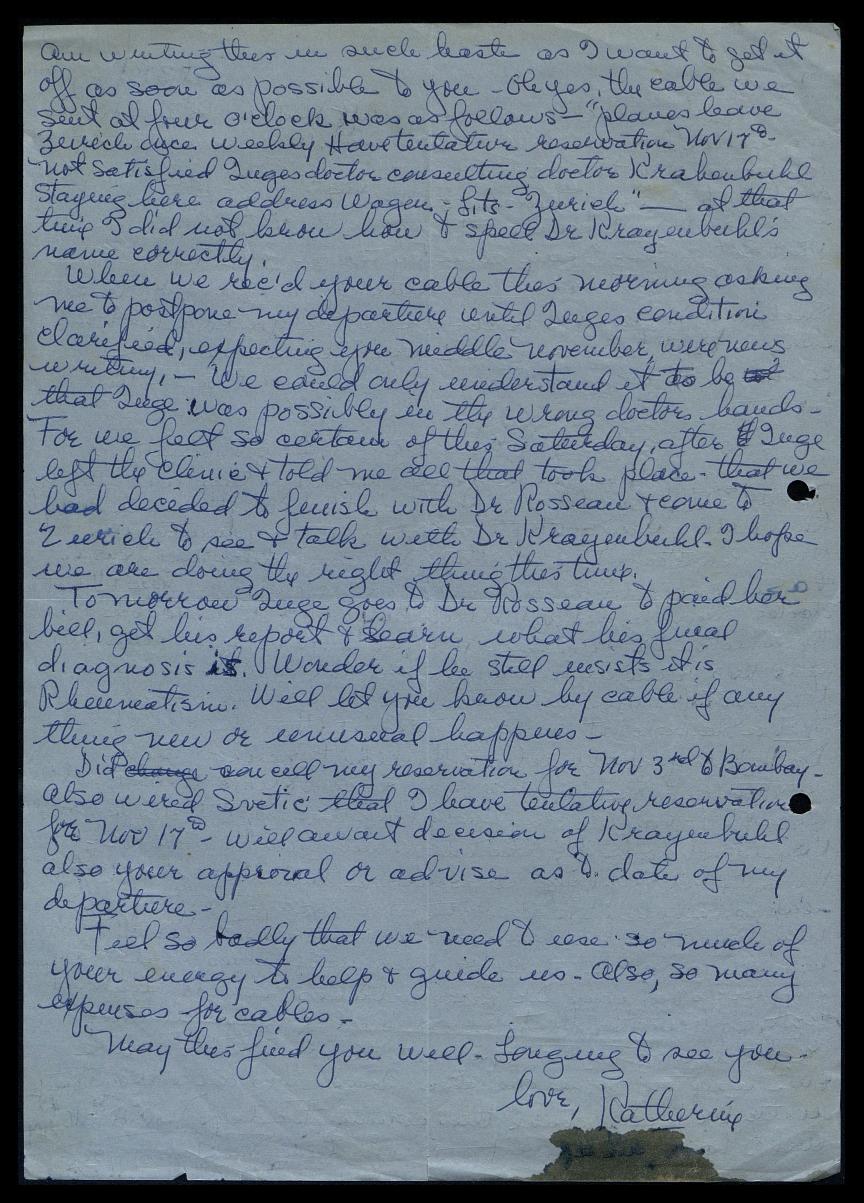 am writing this in such haste as I want to get it
off as soon as possible to you - Oh yes, the cable we
sent at four o'clock was as follows - "planes leave
Zurich once weekly Have tentative reservation Nov 17th -
not satisfied Inges doctor consulting doctor Krahenbuhl
Staying here address Wagon - Lits - Zurich" - at that
time I did not know how to spell Dr Krayenbuhl's
name correctly.
When we rec'd your cable this morning asking
me to postpone my departure until Inges condition
clarified, expecting you middle november, were news
writing, - We could only understand it to be
that Inge was possibly in the wrong doctors hands -
For we felt so certain of this Saturday, after Inge
left the clinic & told me all that took place - that we
had decided to finish with Dr Rosseau & come to
Zurich to see & talk with Dr Krayenbuhl. I hope
we are doing the right thing this time.
Tomorrow Inge goes to Dr Rosseau to paid her
bill, get his report & learn what his final
diagnosis is. Wonder if he still insists it is
Rheumatism. Will let you know by cable if any
thing new or unusual happens -
Did change cancell my reservation for Nov 3rd to Bombay -
also wired Svetic that I have tentative reservation
for Nov 17th - will await decision of Krayenbuhl
also your approval or advise as to date of my
departure -
Feel so badly that we need to use so much of
your energy to help & guide us - Also, so many
expenses for cables -
May this find you well - Longing to see you -
love, Katherine